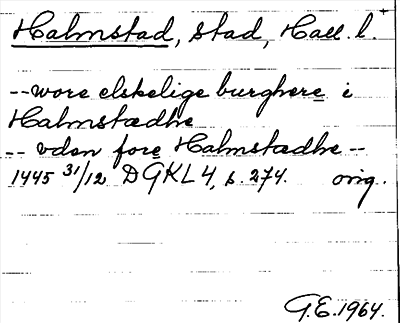 Halmstad, stad, Hall. l.
--wore elskelige burghere i
Halmstædhe
-- vden fore Halmstædhe --
1445 31/12 DGKL 4, s. 274. orig.
G.E. 1964.